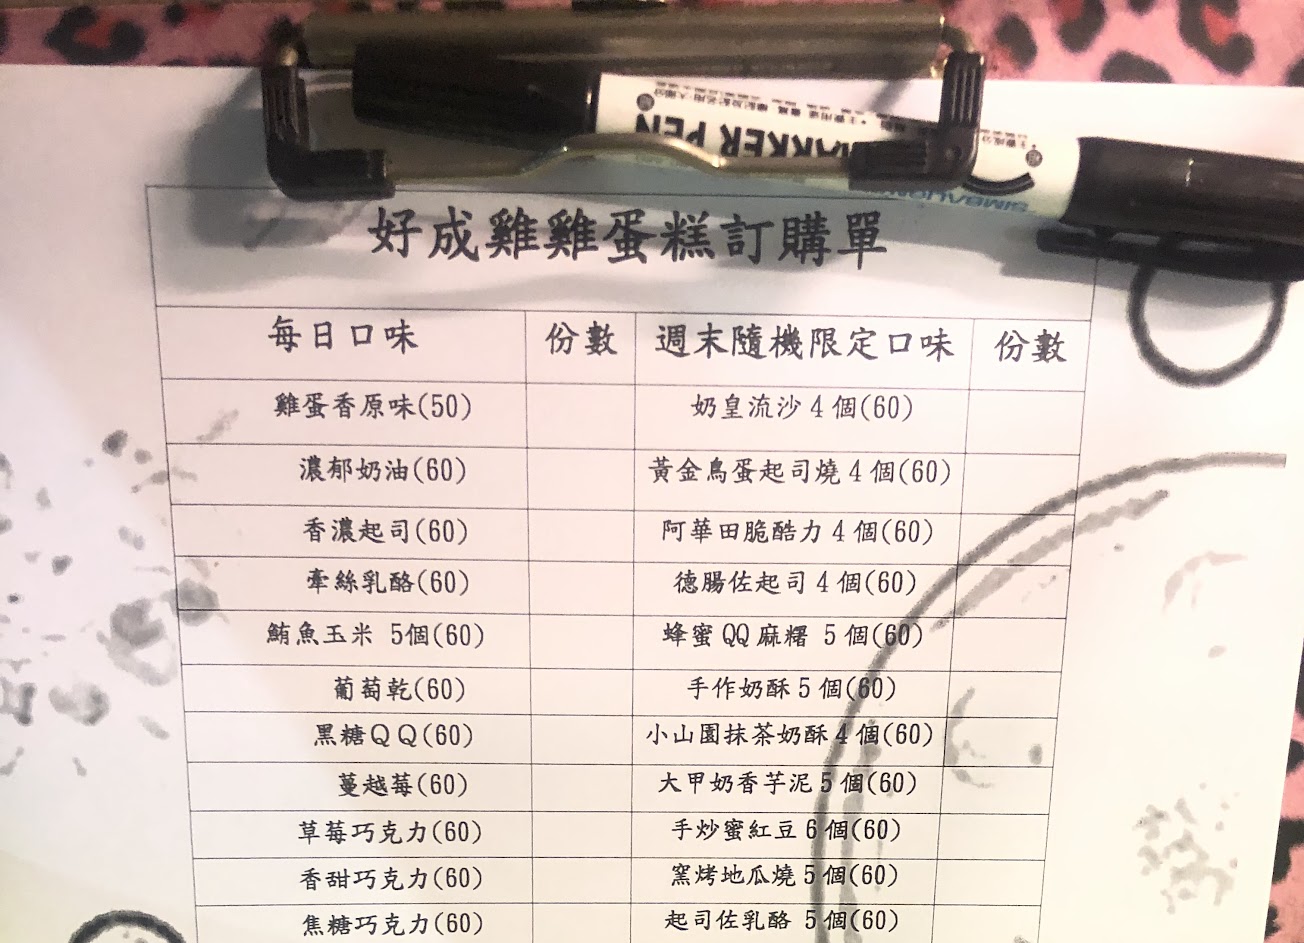 MARKER PEN
SIMBALION
好成雞雞蛋糕訂購單
每日口味 份數 週末隨機限定口味 份數
雞蛋香原味(50) 奶皇流沙4個(60)
濃郁奶油(60) 黃金鳥蛋起司燒4個(60)
香濃起司(60) 阿華田脆酷力4個(60)
牽絲乳酪(60) 德腸佐起司4個(60)
鮪魚玉米 5個(60) 蜂蜜QQ麻糬 5個(60)
葡萄乾(60) 手作奶酥5個(60)
黑糖ＱＱ(60) 小山園抹茶奶酥4個(60)
蔓越莓(60) 大甲奶香芋泥5個(60)
草莓巧克力(60) 手炒蜜紅豆6個(60)
香甜巧克力(60) 窯烤地瓜燒5個(60)
焦糖巧克力(60) 起司佐乳酪 5個(60)